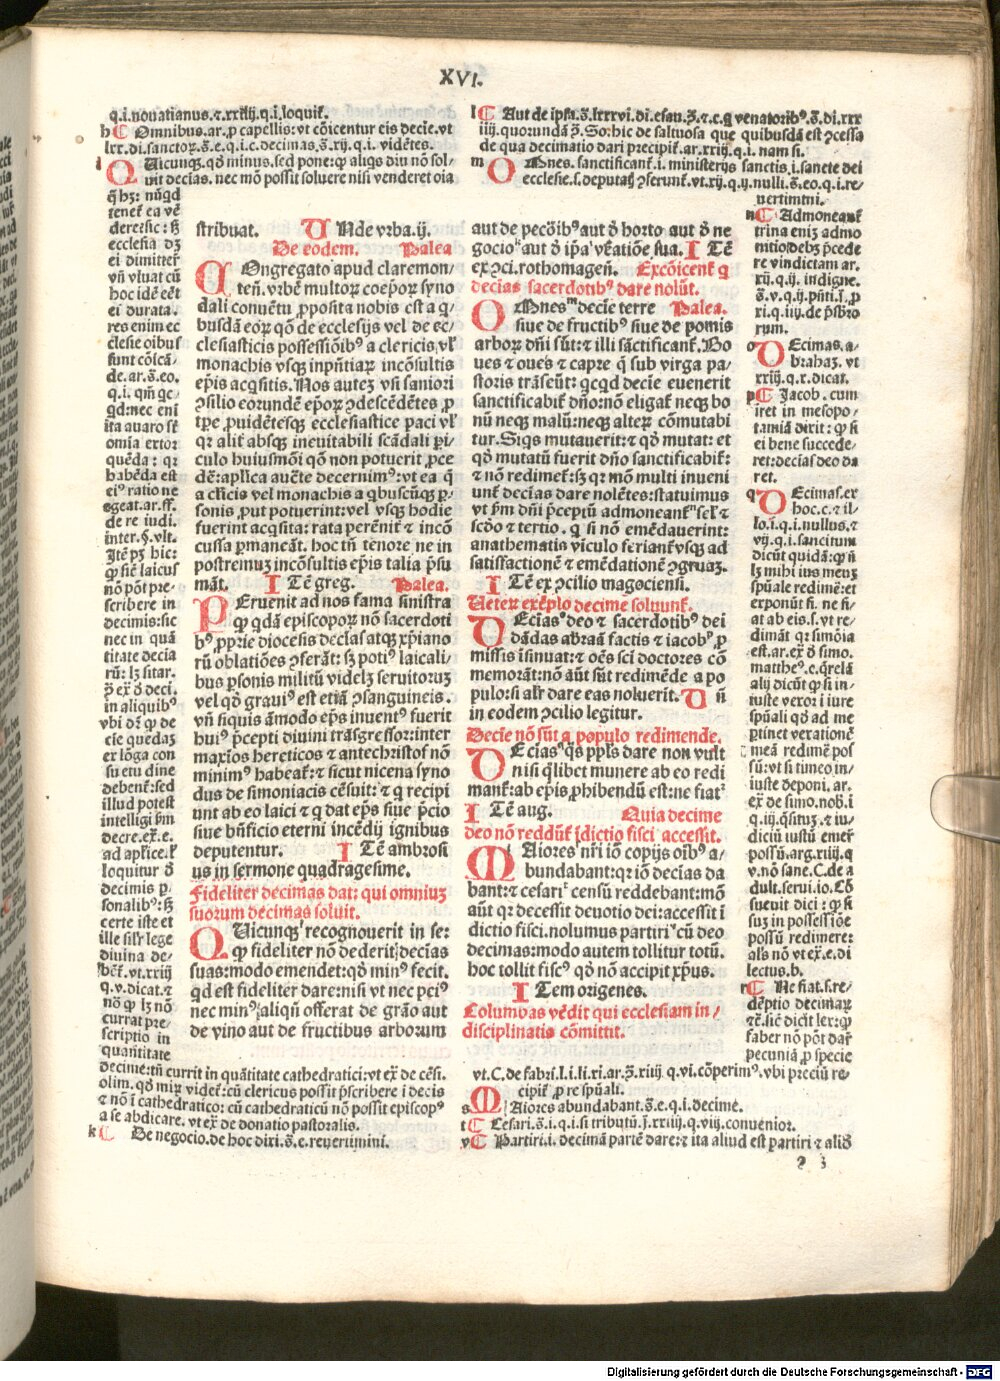 XVI.
q.i.nouatianus.⁊.xxiiij.q.i.loquit̃.
h Omnibus.ar.ꝑ capellis: vt cōicentur eis decīe.vt
lxx.di.sanctoꝝ.s̄.e.q.i.c.decimas.s̄.xij.q.i. vidētes.
i Quicunqꝫ.qđ minus.sed pone:ꝙ aliqs diu nō sol-
uit decīas. nec mō possit soluere nisi venderet oīa
q̄ hꝫ: nūqd
tenet̃ ea vē
dere:sic: sꝫ
ecclesia dꝫ
ei dimitter̃
vñ viuat cū
hoc idē eēt
ei durata.
res enim ec
clesie oībus
sunt cōīcā-
de.ar.s̄.eo.
q.i. qm̄ qc
gd:nec eni
ita auaro sr̄
omīa extor
quēda: qꝛ
habēda est
eiꝰ ratio ne
egeat.ar.ff.
de re iudi.
inter.§.vlt.
Itē pꝫ hic:
ꝙ sic̄ laicus
nō pōt pre-
scribere in
decimis:sic
nec in quā
titate decīa
rū: lꝫ sitar.
ꝑ ex̄ đ deci.
in aliquibꝰ
vbi dr̄ ꝙ de
cīe quedaꝫ
ex lōga con
suetudine
debent̃:sed
illud potest
intelligi ẜm
decre.ex̄.e.
ad ap̄lice.ꝉ
loquitur đ
decimis ꝑ-
sonalibꝰ:sꝫ
certe iste et
ille silr̄ lege
diuina de-
bēt̃.vt.xxiij
q.v.dicat.⁊
nō ꝙ lꝫ nō
currat pre-
scriptio in
quantitate
decime:tn̄ currit in quātitate cathedratici:vt ex̄ de cēsi.
olim. qđ mir̄ videt̃:cū clericus possit p̄scribere ī decīs
⁊ nō ī cathedratico: cū cathedraticū nō possit episcopꝰ
a se abdicare. vt ex̄ de donatio pastoralis.
k De negocio.de hoc dixi.s̄.e.reuertimini.
stribuat. Unde vrba.ij.
De eodem. Palea
COngregato apud claremon-
teñ. vrbē multoꝝ coep̄oꝝ syno
dali conuētu ꝓposita nobis est a q̄-
busdā eoꝝ qō de ecclesijs vel de ec-
clesiasticis possessiōibꝰ a clericis vꝉ
monachis vsqꝫ inp̄ntiaꝝ incōsultis
ep̄is acqsitis. Nos autez vsi saniori
ꝯsilio eorundē ep̄oꝝ ꝯdescēdētes ꝓ
tp̄e ꝓuidētesqꝫ ecclesiastice paci vꝉ
qꝛ alit̃ absqꝫ ineuitabili scādali ꝑi-
culo huiusmōi qō non potuerit ꝓce
dē:aplīca auctē decernimꝰ:vt ea q̄
a clīcis vel monachis a qbuscūqꝫ ꝑ-
sonis ꝓut potuerint:vel vsqꝫ hodie
fuerint acqsita: rata perēnit̃ ⁊ incō
cussa ꝑmaneāt. hoc tn̄ tenore ne in
postremuꝫ incōsultis ep̄is talia p̄su
māt. ITē greg. Palea.
PEruenit ad nos fama sinistra
ꝙ qdā episcopoꝝ nō sacerdoti
bꝰ ꝓprie diocesis decīas atqꝫ xp̄iano
rū oblatiōes ꝯferāt: sꝫ potiꝰ laicali-
bus ꝑsonis militū videlꝫ seruitoruꝫ
vel qđ grauiꝰ est etiā ꝯsanguineis.
vñ siquis āmodo ep̄s inuentꝰ fuerit
huiꝰ p̄cepti diuini trāsgressor:inter
maxīos hereticos ⁊ antechristos nō
minimꝰ habeat̃:⁊ sicut nicena syno
dus de simoniacis cēsuit:⁊ q recipi
unt ab eo laici ⁊ q dat ep̄s siue p̄cio
siue bn̄ficio eterni incēdij ignibus
deputentur. ITē ambrosi
us in sermone quadragesime.
Fideliter decimas dat: qui omniuꝫ
suorum decimas soluit.
QUicunqꝫ recognouerit in se:
ꝙ fideliter nō dederit decīas
suas:modo emendet:qđ minꝰ fecit.
qd est fideliter dare:nisi vt nec peiꝰ
nec minꝰ aliqñ offerat de grāo aut
de vino aut de fructibus arborum
l Aut de ipsa.s̄.lxxxvi.di.esau.s̄.⁊.c.q venatoribꝰ.s̄.di.xxx
iiij.quorundā ꝑ.So:hic de saltuosa que quibusdā est ꝯcessa
de qua decimatio dari precipit̃.ar.xxij.q.i. nam si.
m OMnes. sanctificant̃.i. ministerijs sanctis.i.sancte dei
ecclesie.s.deputati ꝯserunt̃.vt.xij.q.ij.nulli.s̄.eo.q.i.re-
uertimini.
aut de pecōibꝰ aut đ horto aut đ ne
gocio aut đ ipa venatiōe sua. ITē
ex ꝯci.rothomageñ. Excōicent̃ q
decīas sacerdotibꝰ dare nolūt.
OMnes decīe terre Palea.
siue de fructibꝰ siue de pomis
arboꝝ dn̄i sūt:⁊ illi sāctificant̃. Bo
ues ⁊ oues ⁊ capre q̄ sub virga pa-
storis trāseūt: qcqd decīe euenerit
sanctificabit̃ dn̄o:nō eliget̃ neqꝫ bo
nū neqꝫ malū:neqꝫ alteꝝ cōmutabi
tur. Siqs mutauerit:⁊ qđ mutat: et
qđ mutatū fuerit dn̄o sanctificabit̃:
⁊ nō redimet̃:sꝫ qꝛ mō multi inueni
unt̃ decīas dare nolētes:statuimus
vt ẜm dn̄i p̄ceptū admoneant̃ sel̄ ⁊
scđo ⁊ tertio. ꝙ si nō emēdauerint:
anathematis viculo feriant̃ vsqꝫ ad
satisfactionē ⁊ emēdationē ꝯgruaꝫ.
ITē ex ꝯcilio magociensi.
Ueteꝝ exēplo decime soluunt̃.
DEcīas deo ⁊ sacerdotibꝰ dei
dādas abraā factis ⁊ iacob ꝓ
missis īsinuat:⁊ oēs sci doctores cō
memorāt:nō aūt sūt redimēde a po
pulo:si alr̄ dare eas noluerit. Uñ
in eodem ꝯcilio legitur.
Decīe nō sūt a populo redimende.
DEcīas qs ppl̄s dare non vult
nisi qlibet munere ab eo redi
mant̃:ab ep̄is ꝓhibendū est:ne fiat
ITē aug. Quia decime
deo nō reddūt̃ īdictio fisci accessit.
MAiores nr̄i iō copijs oībꝰ a-
bundabant:qꝛ iō decīas da
bant:⁊ cesari censū reddebant:mō
aūt qꝛ decessit deuotio dei:accessit ī
dictio fisci.nolumus partiri cū deo
decimas:modo autem tollitur totū.
hoc tollit fiscꝰ qđ nō accipit xp̄us.
ITem origenes.
Columbas vēdit qui ecclesiam in-
disciplinatis cōmittit.
n Admoneant̃
trina enīꝫ admo
nitio debꝫ p̄cede
re vindictam ar.
xij.q.ij. indigne.
s̄.v.q.ij.p̄nti.ī.ꝓ
xi.q.iij.de p̄sbro
rum.
o DEcimas.a-
brahaꝫ. vt
xxiij.q.x.dicat.
p Jacob.cum
iret in mesopo-
tamiā dixit: ꝙ si
ei bene succede-
ret:decīas deo da
ret.
q DEcimas.ex
hoc.c.⁊ il-
lo.i.q.i.nullus.⁊
vij.q.i.sancitum
dicūt quidā:ꝙ ñ
lꝫ mihi ius meuꝫ
spūale redimē:et
exponūt si. ne fi-
at ab eis.s.vt re-
dimāt qꝛ simōia
est.ar.ex̄ đ simo.
mattheꝰ.c.q̄relā
alij dicūt ꝙ si in-
iuste vero: i iure
spūali qđ ad me
ꝑtinet vexationē
meā redimē pos
sū:vt si timeo in-
iuste deponi. ar.
ex̄ de simo.nob.ī
q.iij.q̄situꝫ.⁊ iu-
diciū iustū emer̃
possū.arg.xiiij.q
v.nō sane.C.de a
dult.serui.io.Cō
sueuit dici: ꝙ si
suꝫ in possessiōe
possū redimere:
als nō vt ex̄.e.di
lectus.b.
r Ne fiat.s.re-
dēptio decimaꝝ
⁊c̄.sic̄ dicit lex:ꝙ
faber nō pōt dar̄
pecuniā ꝓ specie
vt.C.de fabri.l.i.li.xi.ar.s̄.xiij.q.vi.cōperimꝰ.vbi preciū re-
cipit̃ ꝓ re spūali.
s MAiores abundabant.s̄.e.q.i.decime.
t Cesari.s̄.i.q.i.si tributū.ī.xxiij.q.viij.conuenior.
v Partiri.i. decimā partē dare:⁊ ita aliud est partiri ⁊ aliđ
Digitalisierung gefördert durch die Deutsche Forschungsgemeinschaft - DFG